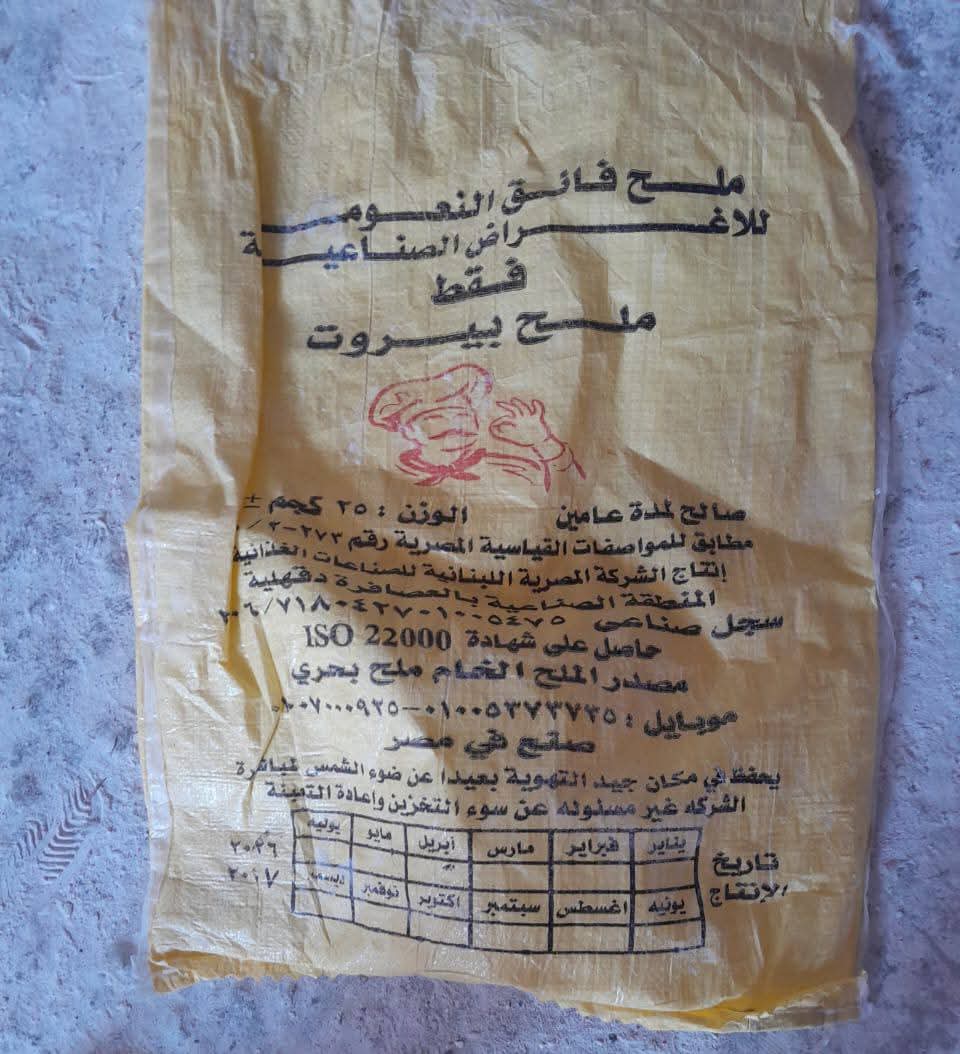 ملح فائق النعومـــــة
للاغـــــراض الصناعيـــــة
فقط
ملح بيروت
صالح لمدة عامين الوزن : ٢٥ كجم ±
مطابق للمواصفات القياسية المصرية رقم ٢٧٣-٢/
إنتاج الشركة المصرية اللبنانية للصناعات الغذائية
المنطقة الصناعية بالعصافرة دقهلية
سجل صناعى
حاصل على شهادة ISO 22000
مصدر الملح الخام ملح بحري
موبايل : ٠١٠٠٥٣٧٣٧٣٥-٠١٠٠٧٠٠٠٩٢٥
صنع في مصر
يحفظ في مكان جيد التهوية بعيدا عن ضوء الشمس المباشرة
الشركه غير مسئوله عن سوء التخزين وإعادة التعبئة
تاريخ الانتاج
يناير فبراير مارس أبريل مايو يوليه
يونيه اغسطس سبتمبر اكتوبر نوفمبر ديسمبر